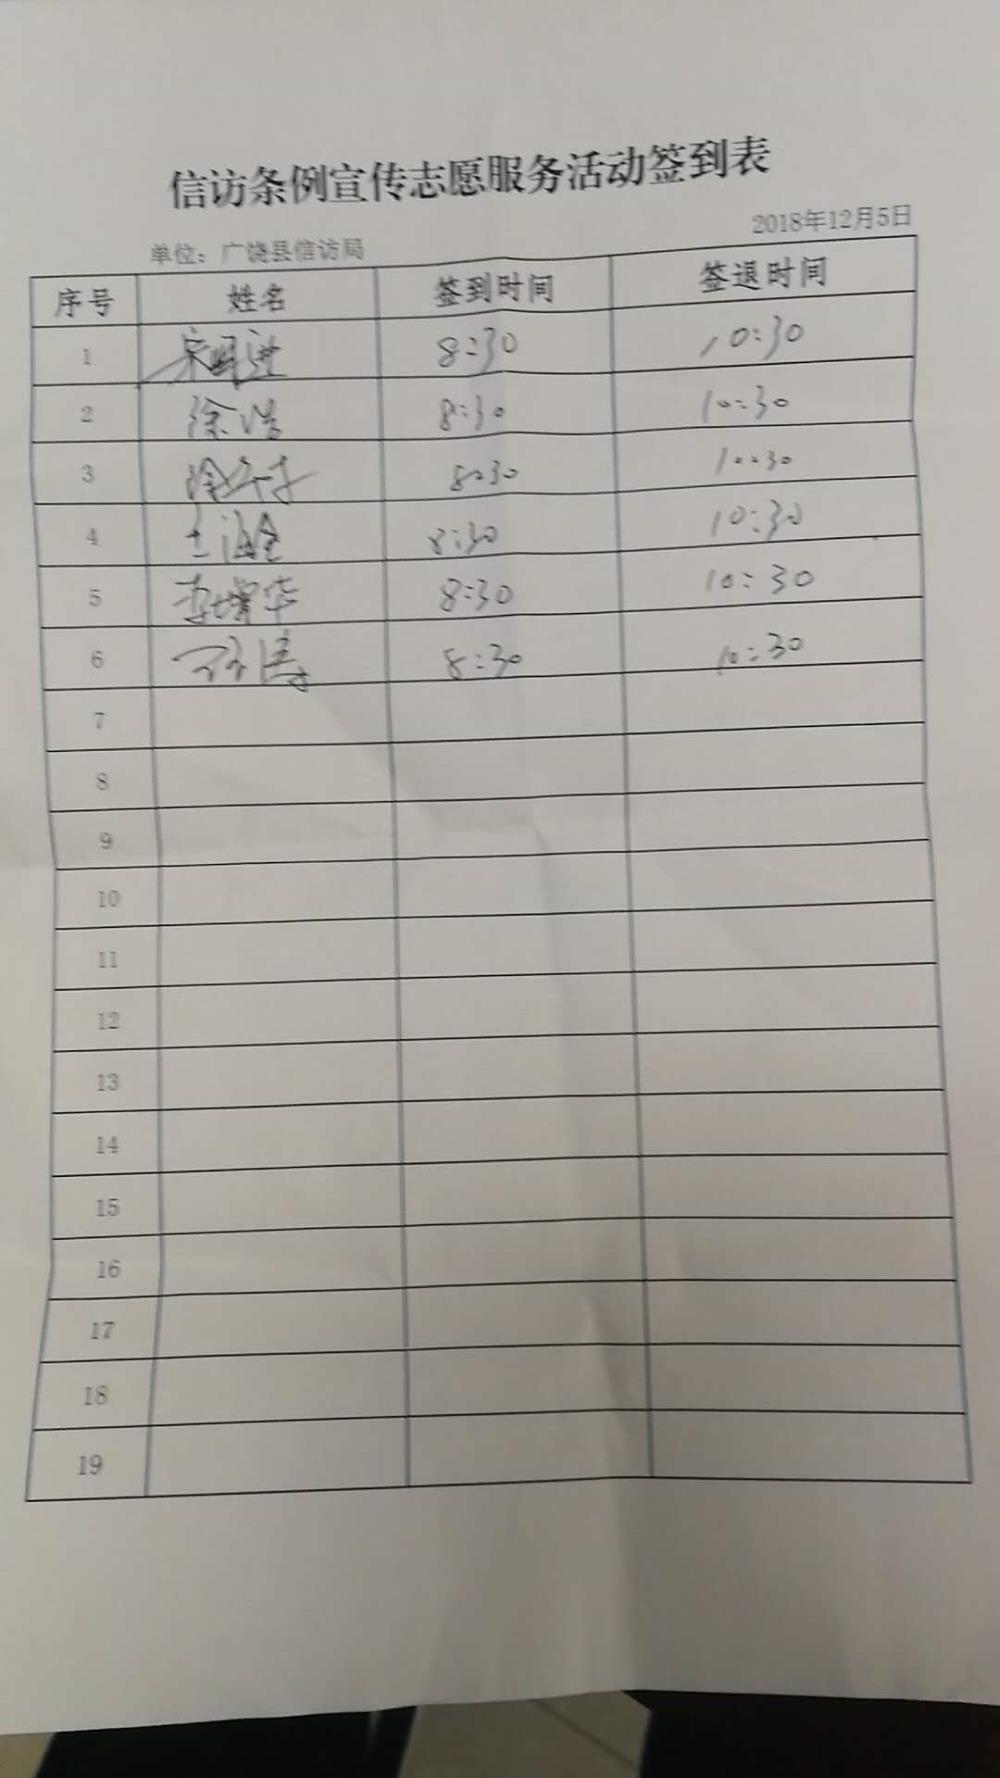 信访条例宣传志愿服务活动签到表
2018年12月5日
单位：广饶县信访局
序号 姓名 签到时间 签退时间
1 宋明进 8:30 10:30
2 徐浩 8:30 10:30
3 8:30 10:30
4 王海全 8:30 10:30
5 李增华 8:30 10:30
6 孙涛 8:30 10:30
7
8
9
10
11
12
13
14
15
16
17
18
19